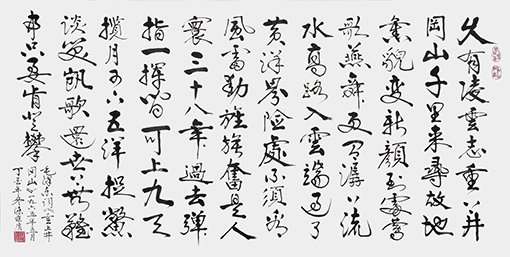 久有凌雲志重上井
岡山千里来尋故地
舊貌變新顏到處鶯
歌燕舞更有潺潺流
水高路入雲端過了
黄洋界险處不須看
風雷動旌旗奮是人
寰三十八年過去弹
指一揮間可上九天
揽月可下五洋捉鱉
談笑凯歌還世上無難
事只要肯登攀
毛泽东词重上井
岡山一九六五年五月
丁亥年冬